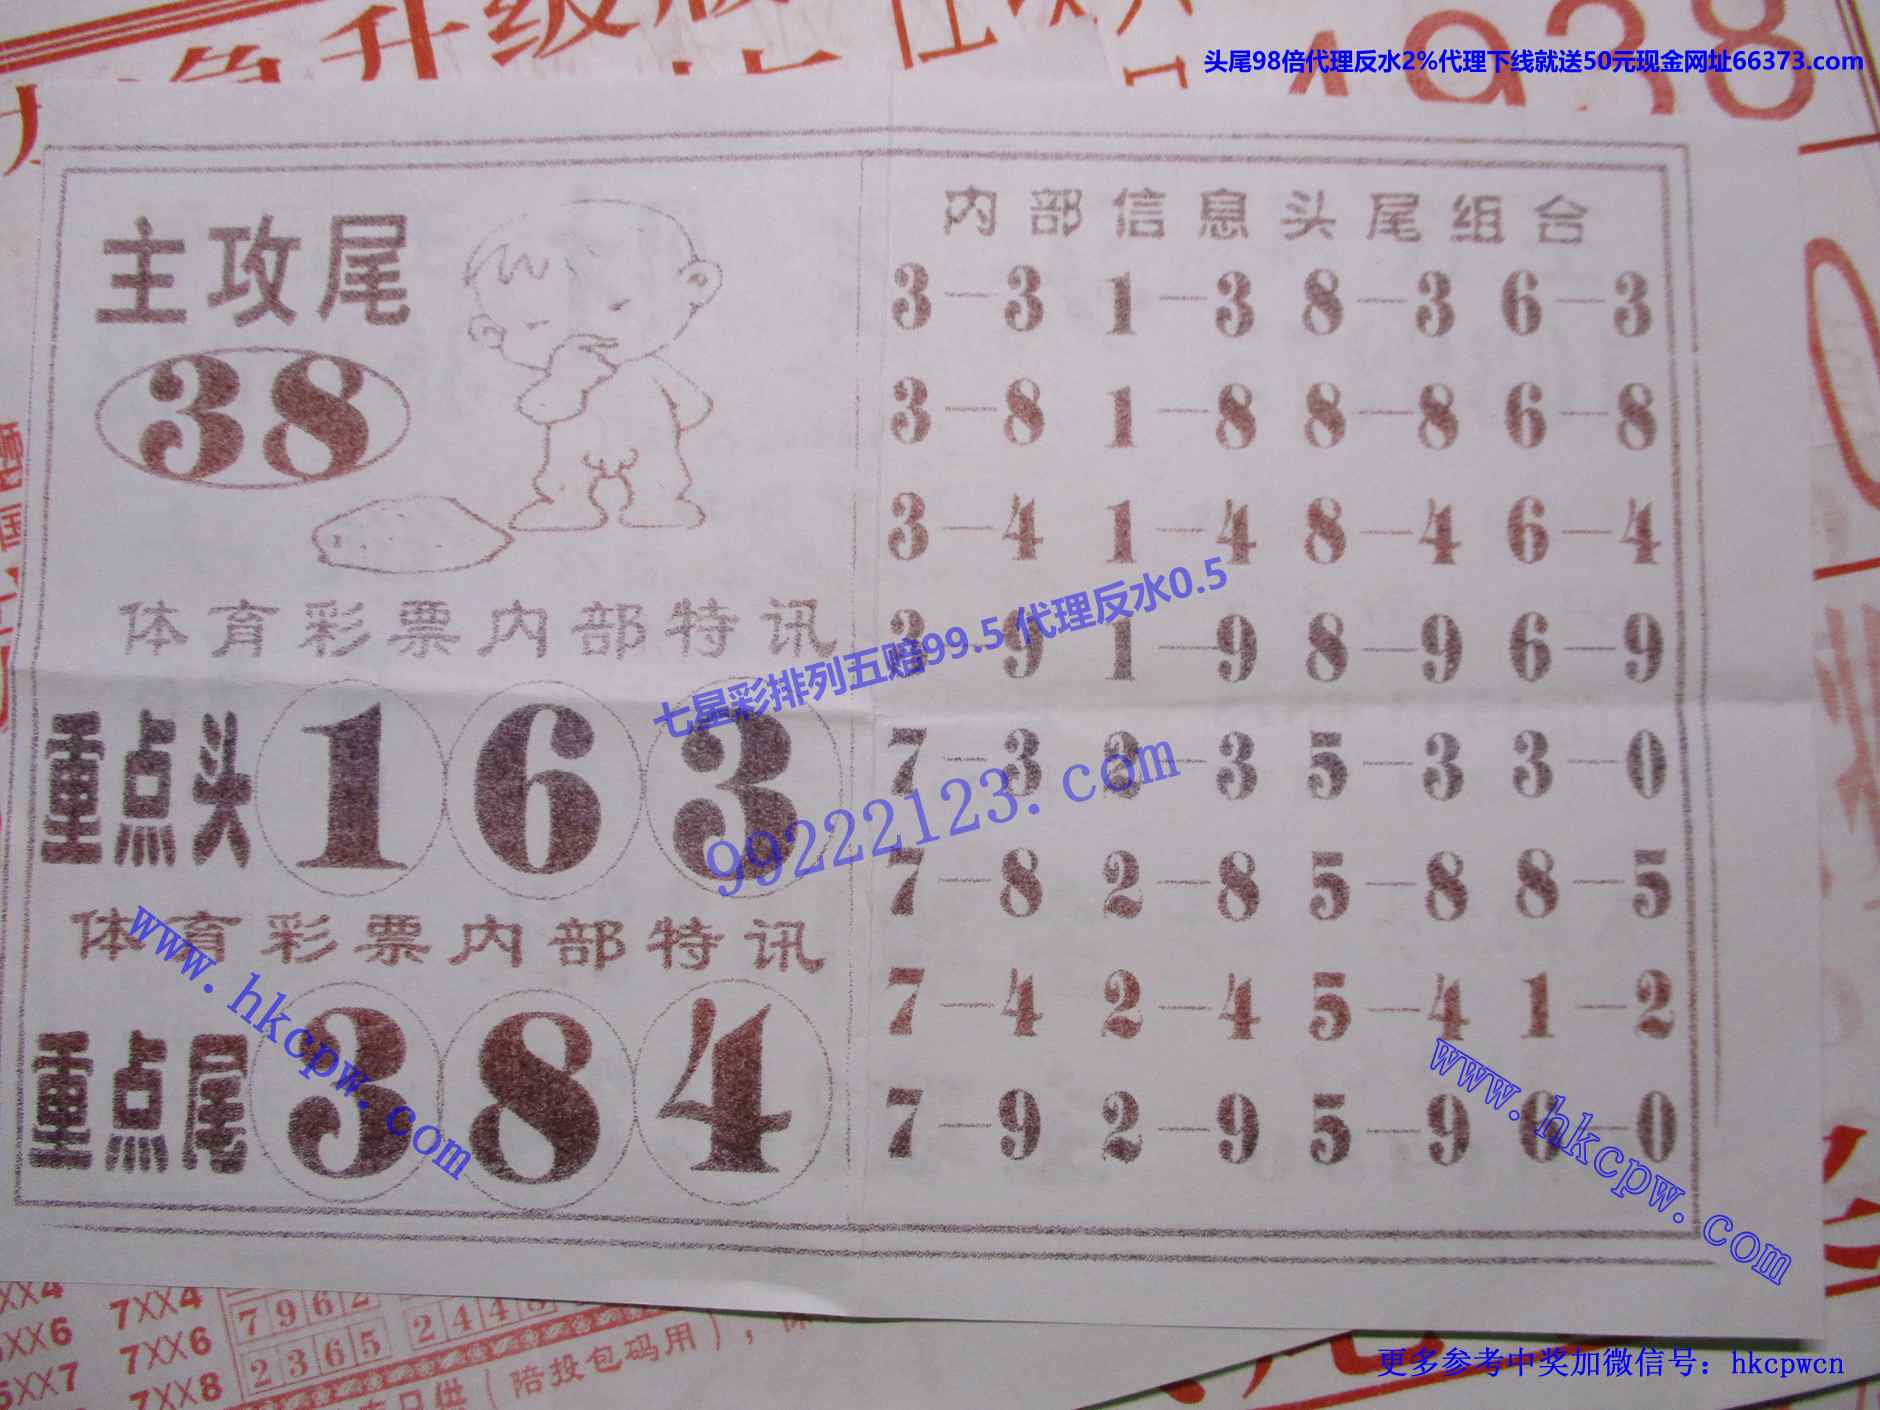 头尾98倍代理反水2%代理下线就送50元现金网址66373.com
主攻尾
38
体育彩票内部特讯
重点头 1 6 3
体育彩票内部特讯
重点尾 3 8 4
内部信息头尾组合
3—3 1—3 8—3 6—3
3—8 1—8 8—8 6—8
3—4 1—4 8—4 6—4
3—9 1—9 8—9 6—9
7—3 2—3 5—3 3—0
7—8 2—8 5—8 8—5
7—4 2—4 5—4 1—2
7—9 2—9 5—9 6—0
七星彩排列五赔99.5 代理反水0.5
99222123.com
www.hkcpw.com
www.hkcpw.com
7XX4
7XX6
7XX7
7XX8
7962
2365
(陪投包码用),
更多参考中奖加微信号：hkcpwcn